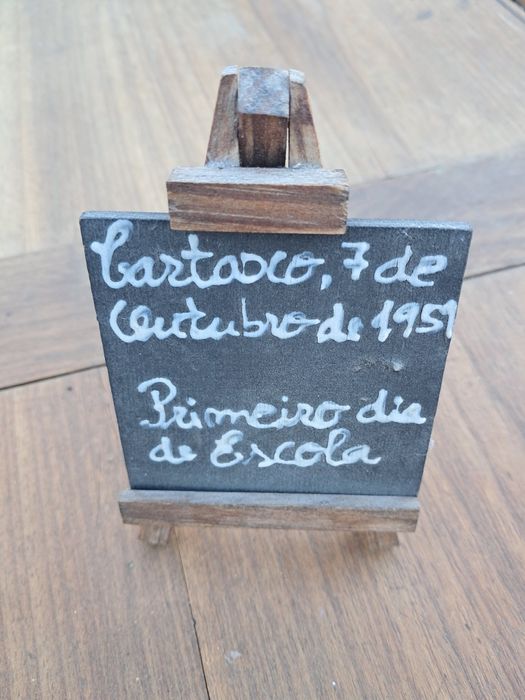 Cartaxo, 7 de
Outubro de 1951
Primeiro dia
de Escola